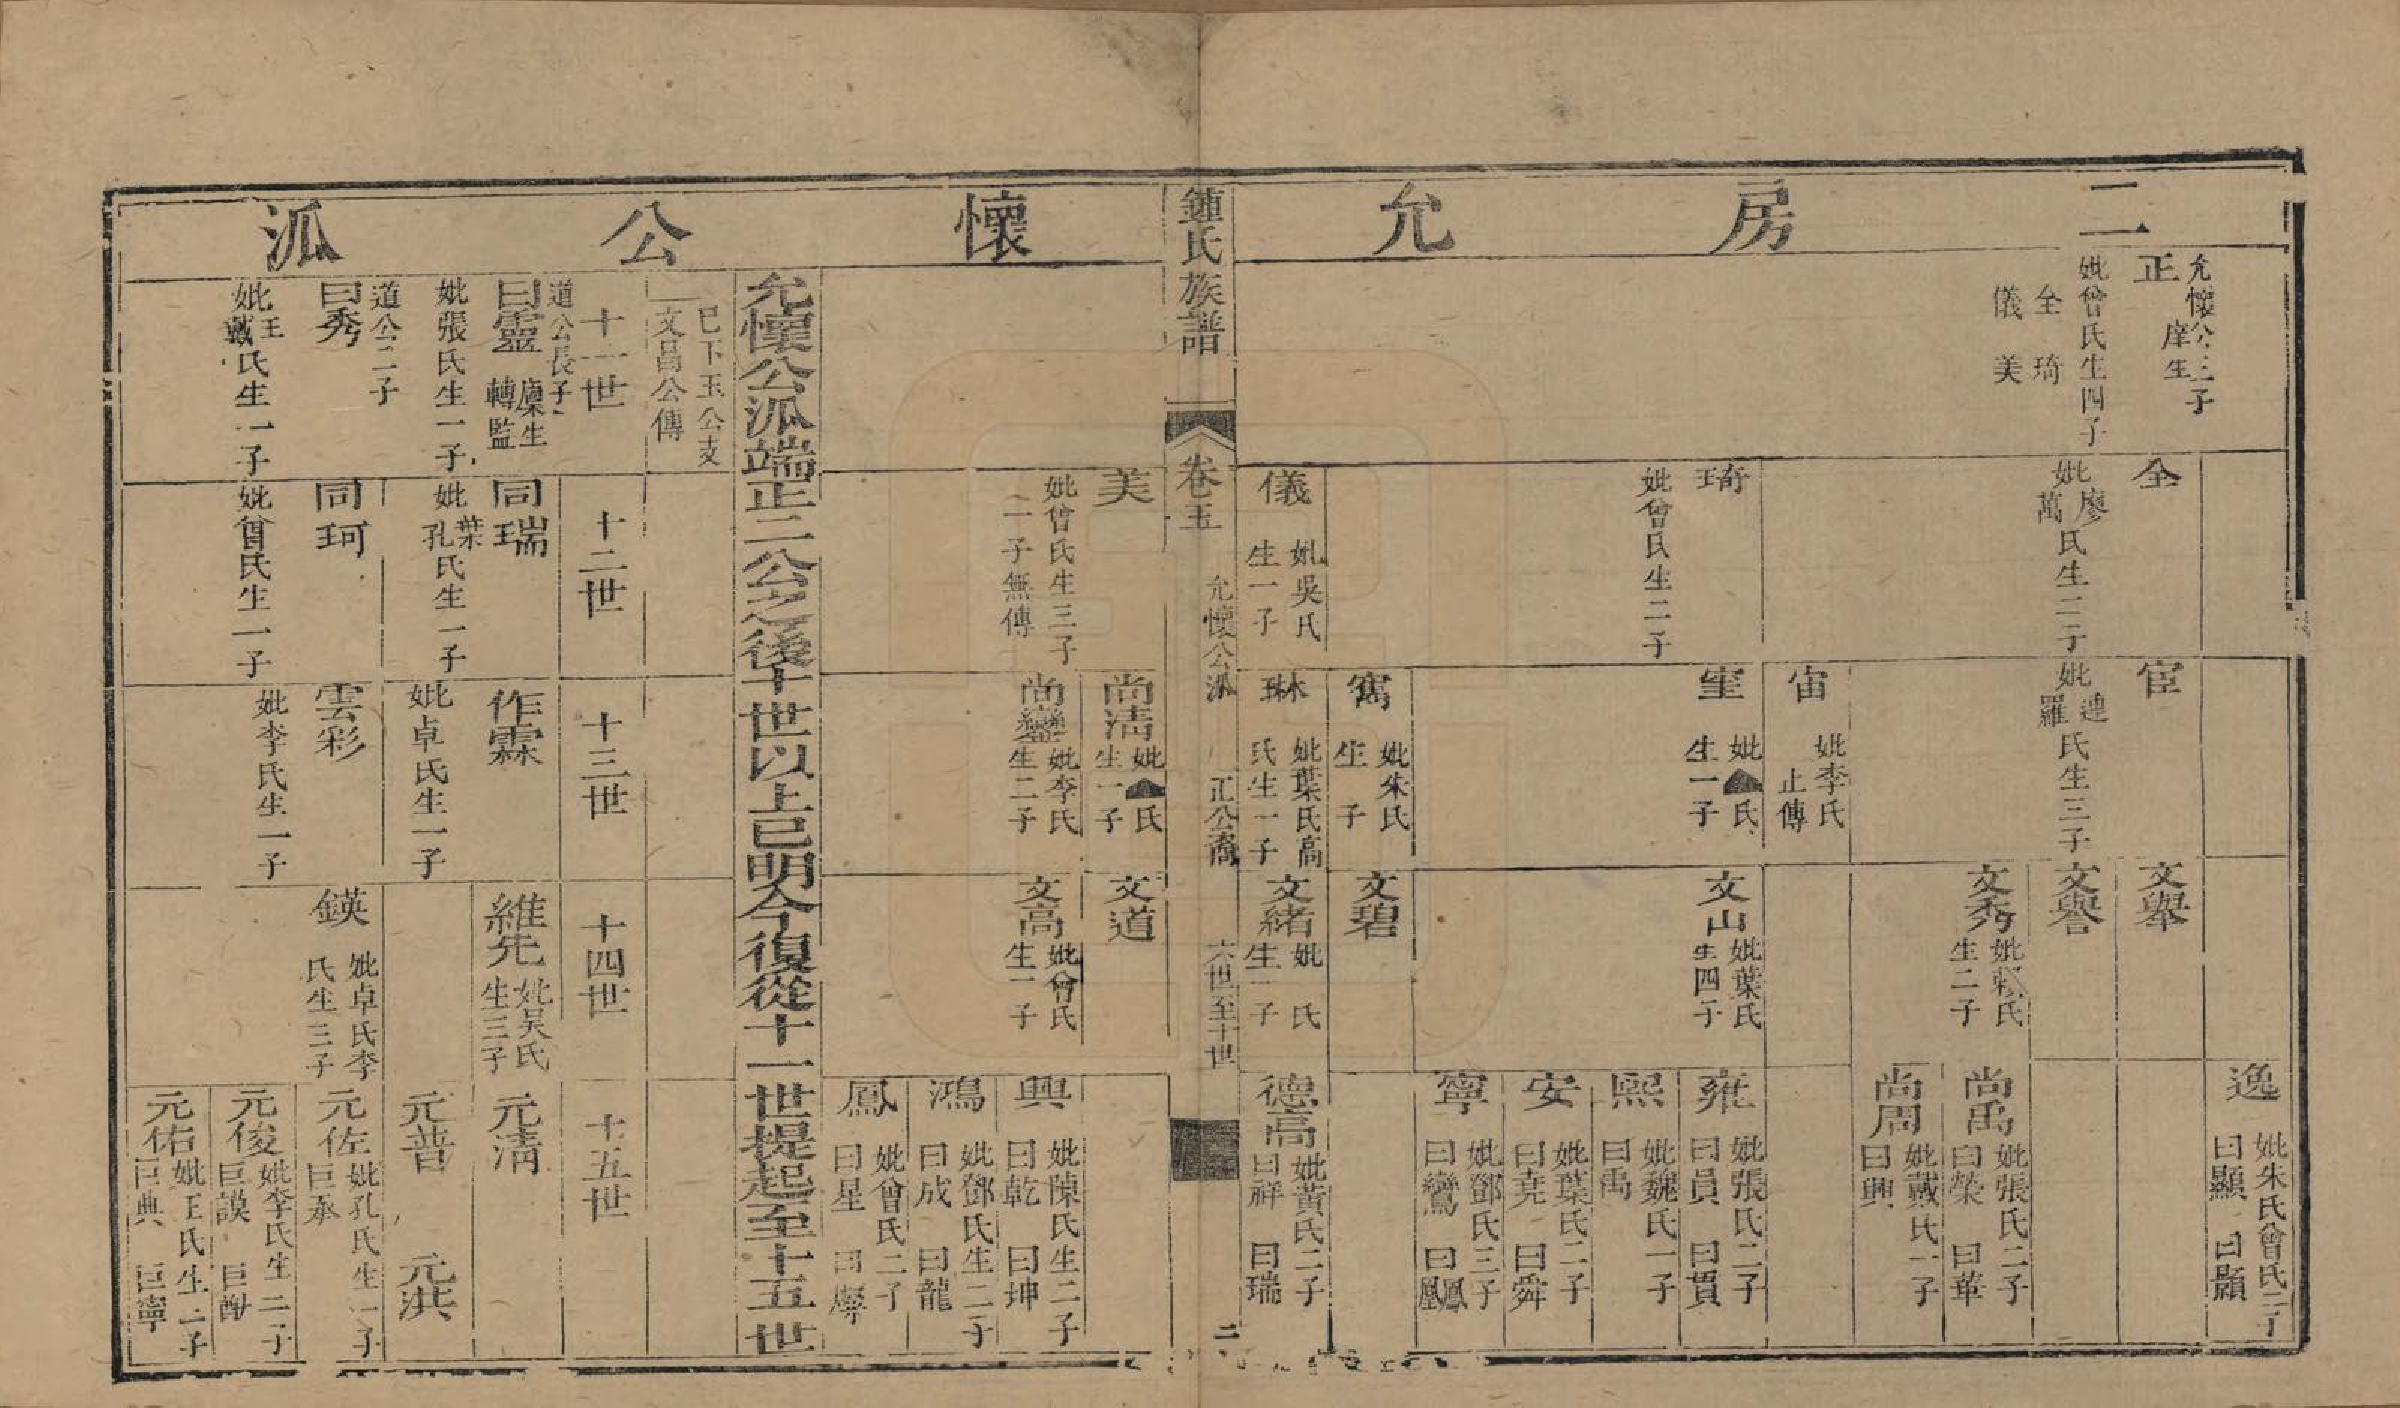 二房允懷公派
正 庠生
允懷公三子
妣曾氏生四子
全 琦
儀 美
全
妣廖萬氏生二子
琦
妣曾氏生二子
儀
妣吳氏
生一子
宦
妣連羅氏生三子
宙
妣李氏
止傳
室
妣 氏
生一子
寯
妣朱氏
生 子
琳
妣葉氏高
氏生一子
文舉
文譽
文秀
妣賴氏
生二子
文山
妣葉氏
生四子
文碧
文緒
妣 氏
生一子
逸
妣朱氏曾氏二子
曰顯 曰顥
尚禹
妣張氏二子
曰榮 曰華
尚周
妣戴氏一子
曰興
雍
妣張氏二子
曰員 曰貫
熙
妣魏氏一子
曰禹
安
妣葉氏二子
曰堯 曰舜
寧
妣鄧氏三子
曰鸞 曰鳳凰
德高
妣黃氏二子
曰祥 曰瑞
鍾氏族譜
卷五
允懷公派
正公裔
六世至十世
二
美
妣曾氏生三子
二子無傳
尚清
妣 氏
生一子
尚鑾
妣李氏
生二子
文道
文高
妣曾氏
生一子
興
妣陳氏生二子
曰乾 曰坤
鴻
妣鄧氏生二子
曰成 曰龍
鳳
妣曾氏二子
曰星
允懷公派端正二公之後十世以上已明今復從十一世提起至十五世
已下玉公支
文昌公傳
十一世
十二世
十三世
十四世
十五世
道公長子
曰靈 廩生轉監
妣張氏生一子
道公二子
曰秀
妣王戴氏生一子
同瑞
妣葉孔氏生一子
同珂
妣曾氏生一子
作霖
妣卓氏生一子
雲彩
妣李氏生一子
維先
妣吴氏
生三子
鍈
妣卓氏李
氏生三子
元清
元普 元洪
元佐
妣孔氏生一子
巨承
元俊
妣李氏生二子
巨謨 巨猷
元佑
妣王氏生二子
巨典 巨寧